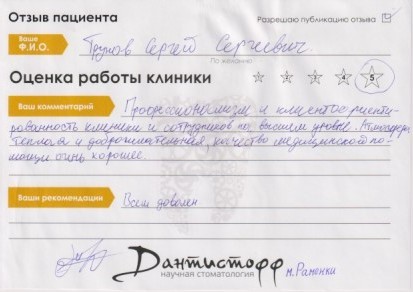 Отзыв пациента
Разрешаю публикацию отзыва
Ваше Ф.И.О.
Трунов Сергей Сергеевич
По желанию
Оценка работы клиники
1 2 3 4 5
Ваш комментарий
Профессионализм и клиентоориенти-
рованность клиники и сотрудников по высшем уровне. Атмосфера
теплая и доброжелательная, качество медицинской по-
мощи очень хорошее.
Ваши рекомендации
Всем доволен
Дантистофф
научная стоматология
м. Раменки